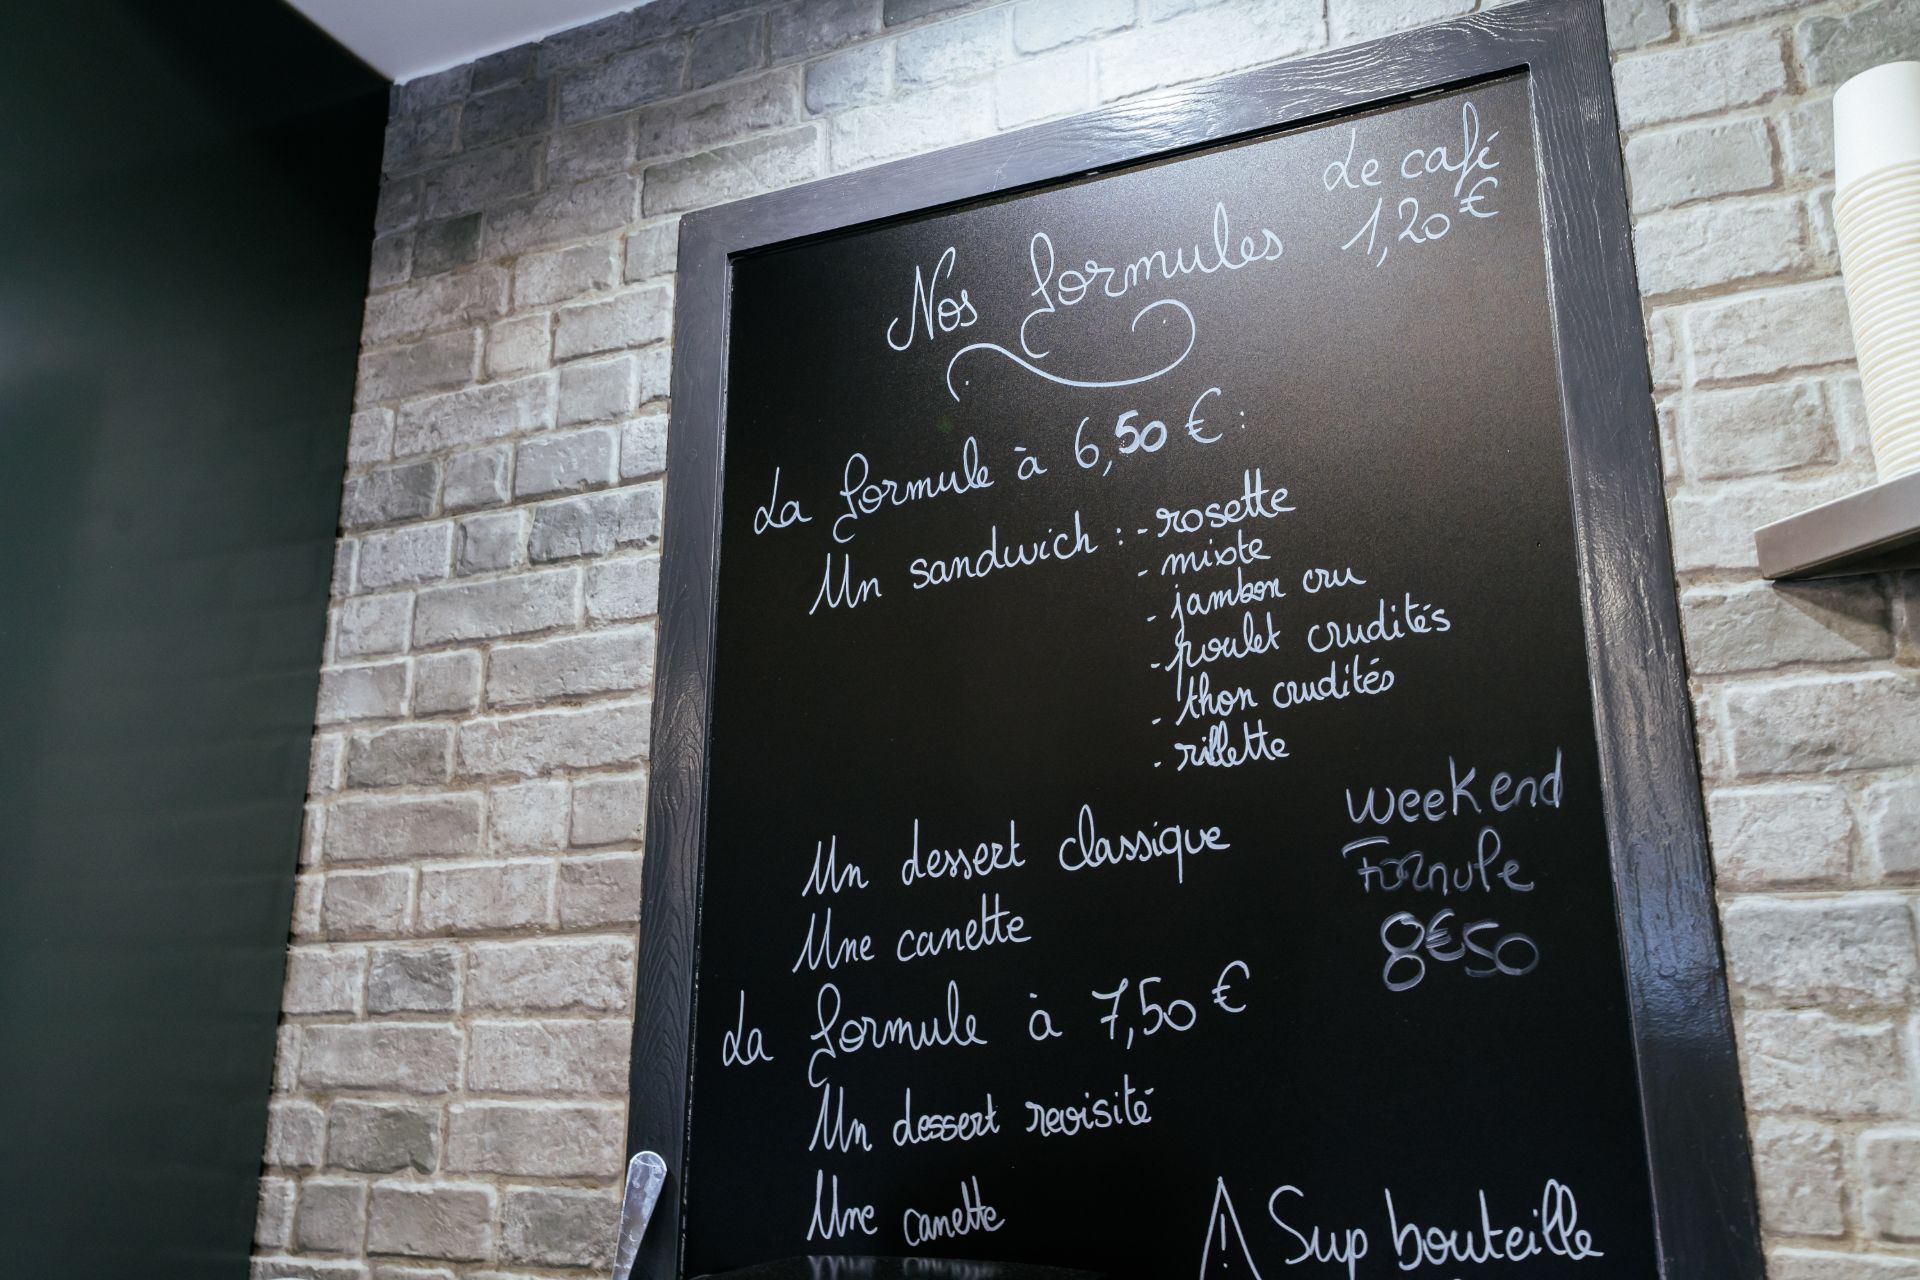 Le café
1,20 €
Nos formules
La formule à 6,50 € :
Un sandwich : - rosette
- mixte
- jambon cru
- poulet crudités
- thon crudités
- rillette
Un dessert classique
Une canette
Weekend
Formule
8€50
La formule à 7,50 €
Un dessert revisité
Une canette
⚠ Sup bouteille